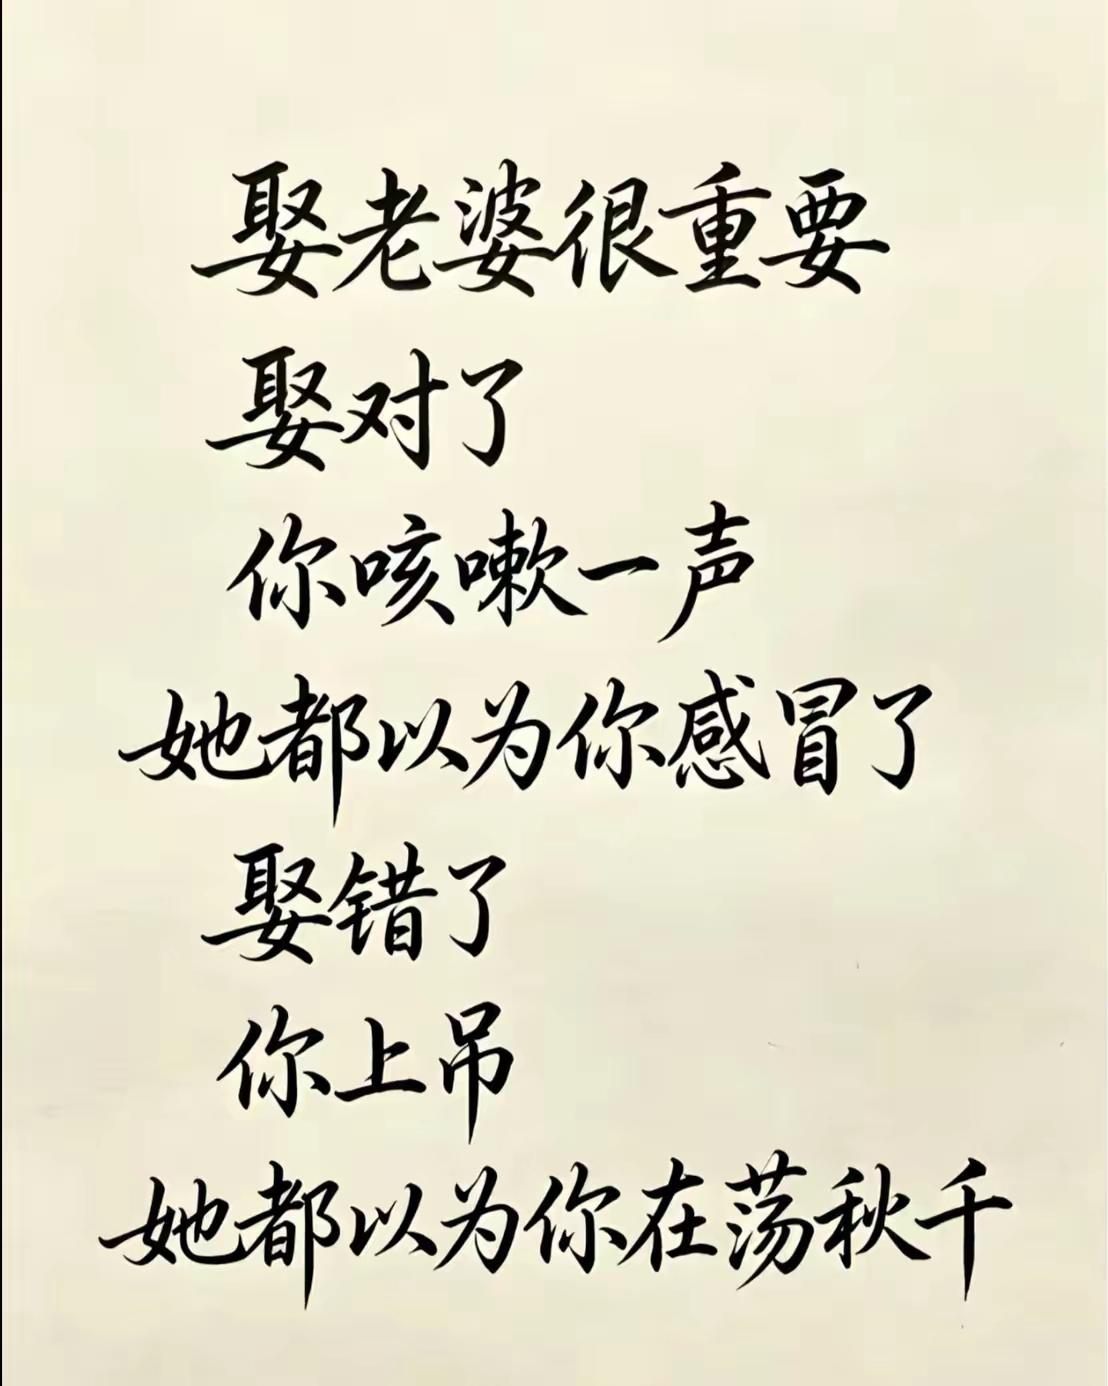 娶老婆很重要
娶对了
你咳嗽一声
她都以为你感冒了
娶错了
你上吊
她都以为你在荡秋千